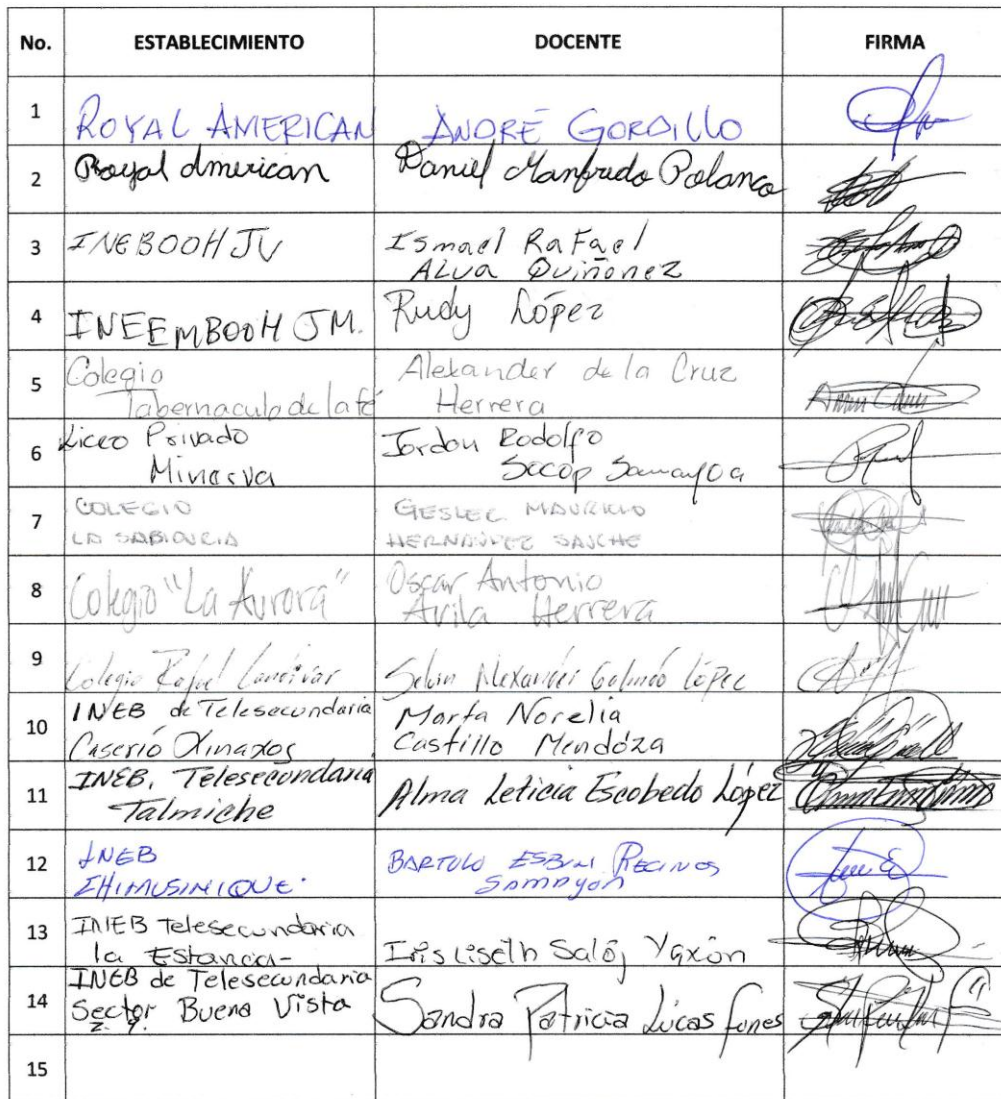 No. ESTABLECIMIENTO DOCENTE FIRMA
1 ROYAL AMERICAN ANDRÉ GORDILLO
2 Royal American Daniel Manfredo Polanco
3 INEBOOHJV Ismael RaFael
ALVA Quiñonez
4 INEEMBOOH JM. Rudy López
5 Colegio Alexander de la Cruz
Tabernaculo de la fé Herrera
6 Liceo Privado Jordon Rodolfo
Minerva Socop Samayoa
7 COLEGIO GESLER MAURICIO
LA SABIDURIA HERNANDEZ SANCHE
8 Colegio "La Aurora" Oscar Antonio
Avila Herrera
9 Colegio Rafael Landivar Selvin Alexander Galindo López
10 INEB de Telesecundaria Marta Norelia
Caserió Xinaxos Castillo Mendóza
11 INEB. Telesecundaria Alma Leticia Escobedo López
Talmiche
12 INEB BARTULO ESBIN RECINOS
CHIMUSINIQUE. SAMAYOA
13 INEB Telesecundaria
la Estancia- Iris Liseth Salój Yaxón
14 INEB de Telesecundaria
Sector Buena Vista Sandra Patricia Lucas funes
Z. 9.
15